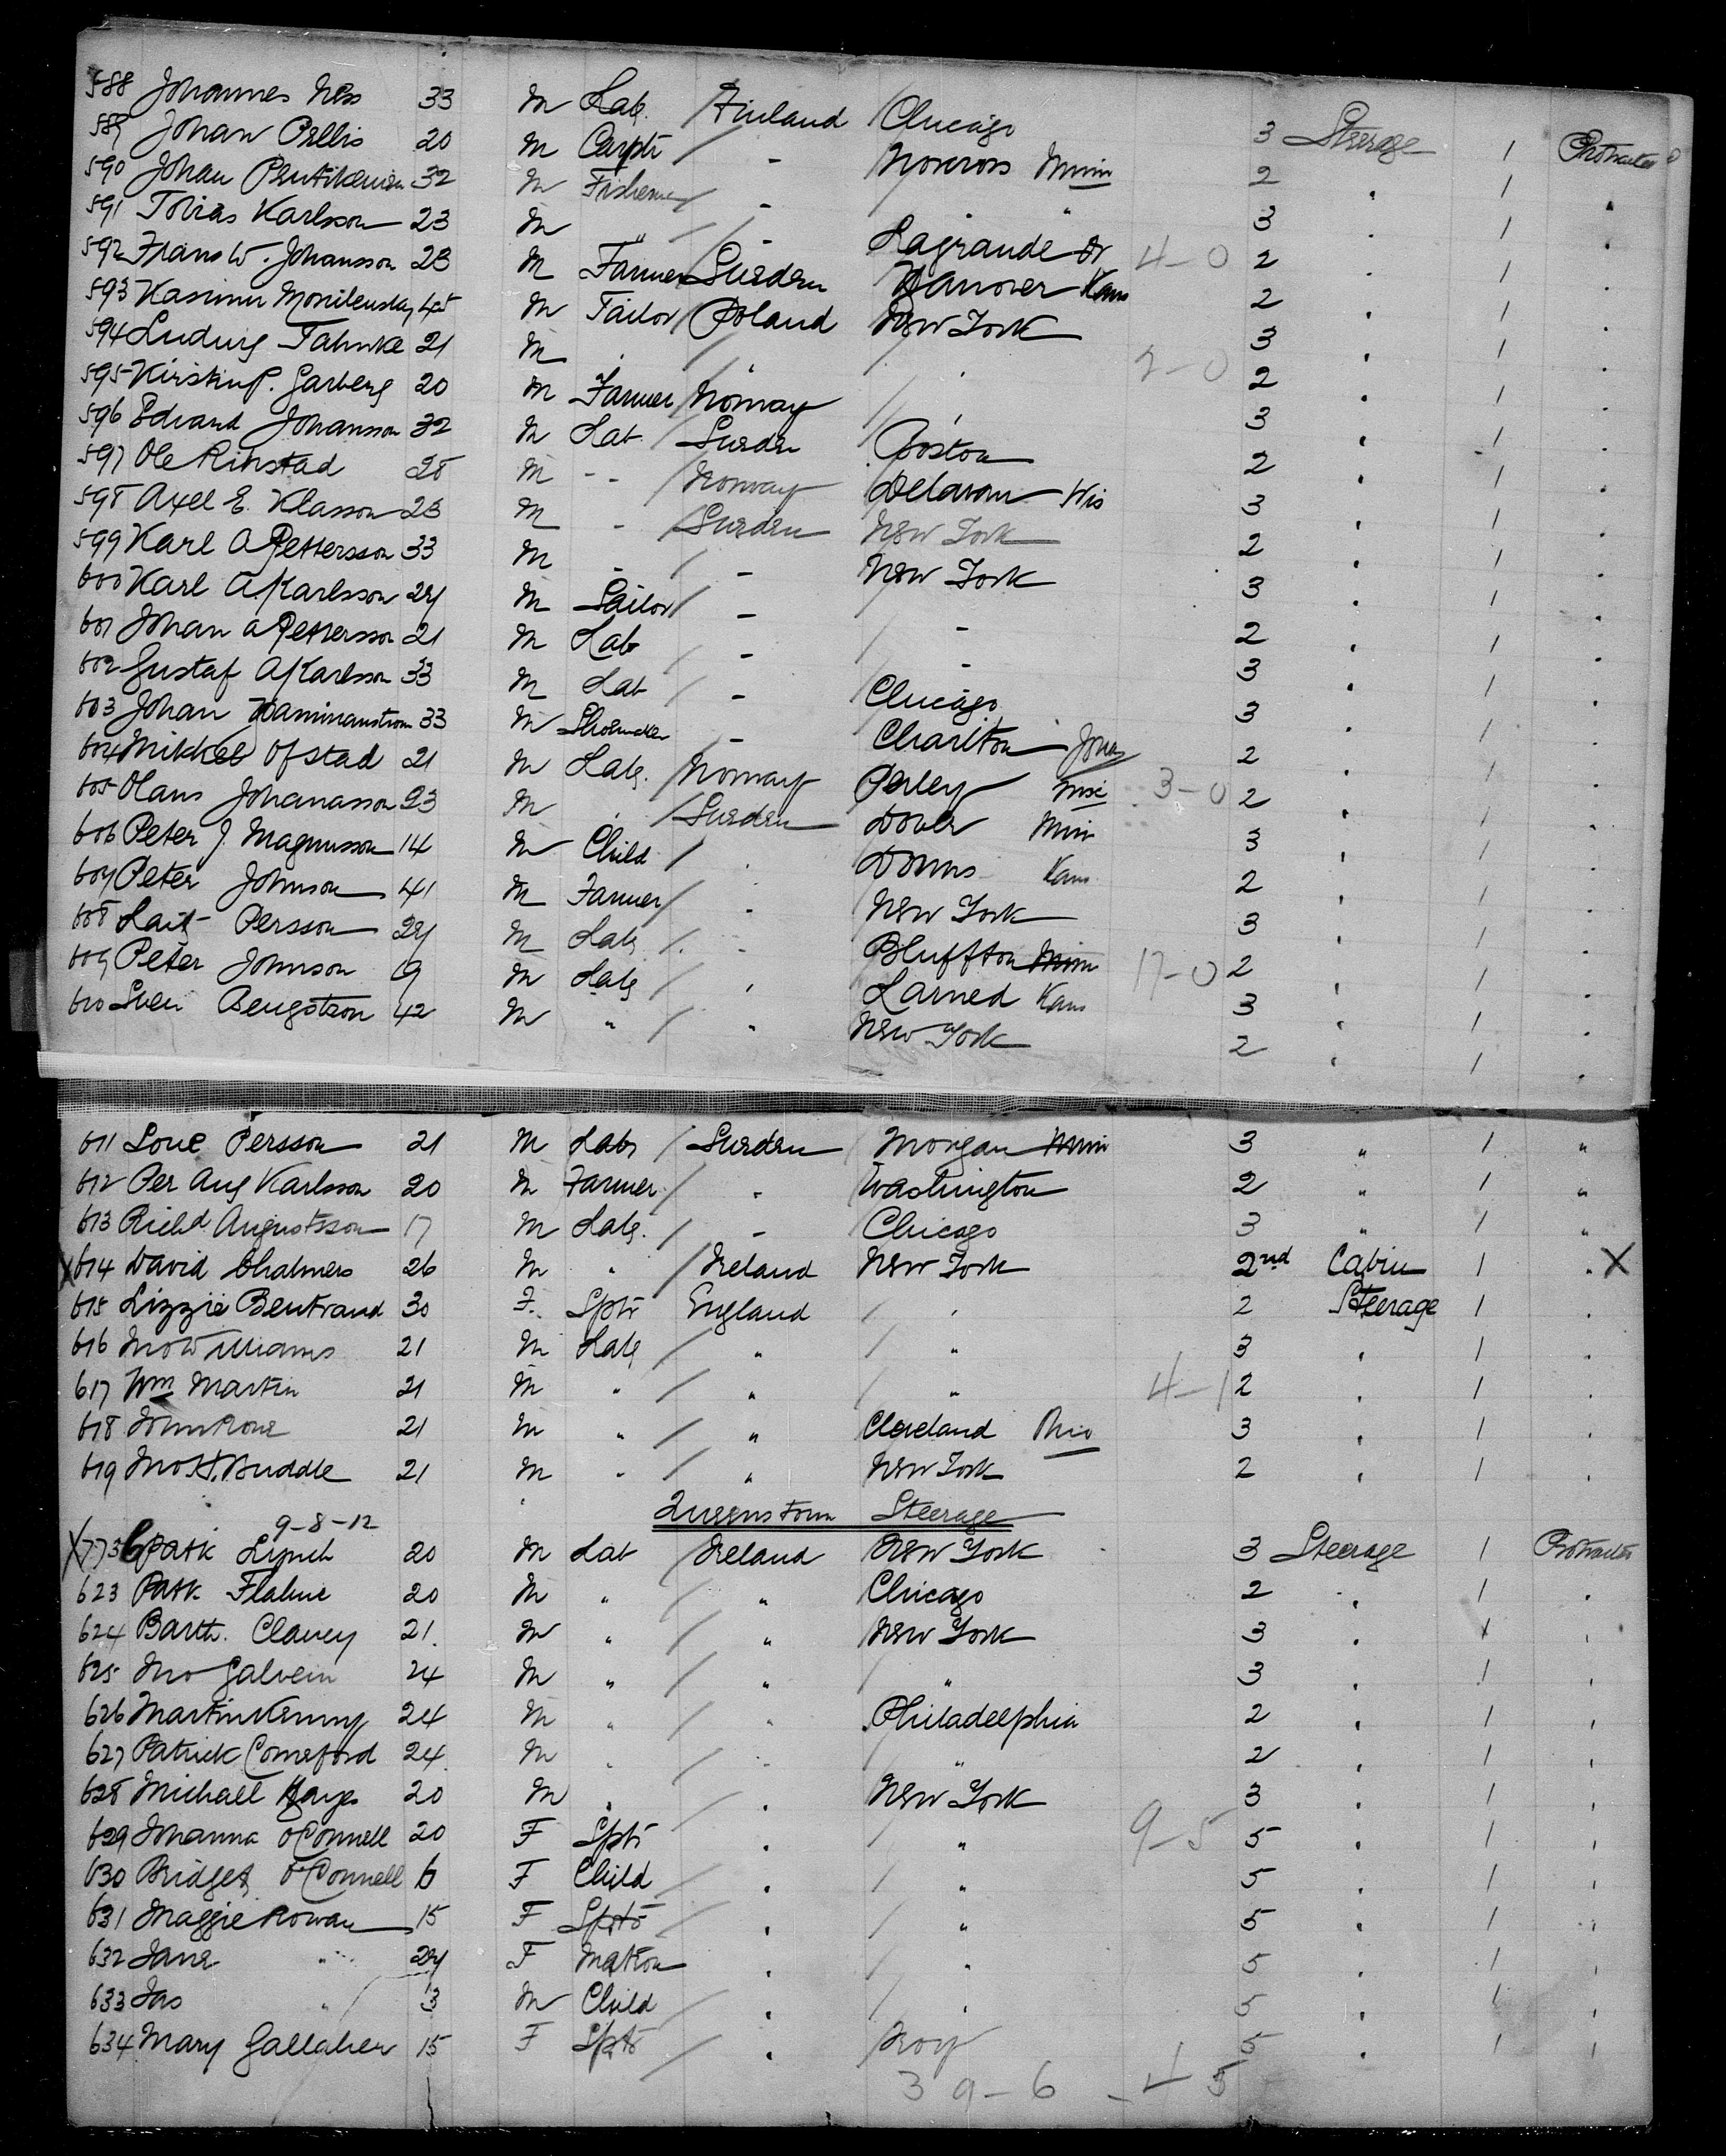 588 Johannes Ness 33 M Lab. / Finland / Chicago 3 Steerage 1 Protracted
589 Johan Pellis 20 M Carptr / - Norcross Minn 2 . 1 "
590 Johan 32 M Fisherman / - " 3 . 1 .
591 Tobias Karlsson 23 M " / - Lagrande Or 4-0 2 . 1 .
592 Frans W. Johansson 23 M Farmer Sweden Hanover Kans 2 . 1 .
593 45 M Tailor / Poland New York 3 . 1 .
594 Ludwig 21 M . / " / . 2-0 2 . 1 .
595 Garberg 20 M Farmer / Norway / . 3 . 1 .
596 Edvard Johansson 32 M Lab. / Sweden Boston 2 . 1 .
597 Ole Rinstad 28 M - - / Norway Delavan Wis 3 . 1 .
598 Axel E. Klasson 23 M - / Sweden New York 2 . 1 .
599 Karl A Pettersson 33 M - / - New York 3 . 1 .
600 Karl A Karlsson 24 M Sailor / - / - 2 . 1 .
601 Johan A Pettersson 21 M Lab / - / - 3 . 1 .
602 Gustaf A Karlsson 33 M Lab / - Chicago 3 . 1 .
603 Johan 33 M Shoemaker - Charlton Iowa 2 . 1 .
604 Mikkel Ofstad 21 M Lab. / Norway Perley 3-0 2 . 1 .
605 Hans Johanasson 23 M . / Sweden Dover Minn 3 . 1 .
606 Peter J. Magnusson 14 M Child / . Downs Kans 2 . 1 .
607 Peter Johnson 41 M Farmer / - New York 3 . 1 .
608 Persson 24 M Lab. / - Bluffton Minn 17-0 2 . 1 .
609 Peter Johnson 19 M Lab / . Larned Kans 3 . 1 .
610 Sven Bengtson 42 M " / " New York 2 . 1 .
611 Persson 21 M Lab / Sweden / Morgan Minn 3 " 1 "
612 Per Aug Karlsson 20 M Farmer / - Washington 2 " 1 "
613 Richd Augustsson 17 M Lab. / - Chicago 3 " 1 "
X 614 David Chalmers 26 M " / Ireland New York 2nd Cabin 1 . X
615 Lizzie Bertrand 30 F. Sptr England / . 2 Steerage 1 .
616 Jno Williams 21 M Lab / " / " 3 . 1 .
617 Wm Martin 21 M " / " / " 4-1 2 . 1 .
618 John Rowe 21 M " / " Cleveland Ohio 3 . 1 .
619 Jno H. Buddle 21 M " / " New York 2 . 1 .
Queenstown Steerage
9-8-12
X 7736 Patk Lynch 20 M Lab / Ireland / New York 3 Steerage 1 Protracted
623 Patk 20 M " / " Chicago 2 . 1 .
624 Barth. Clancy 21. M " / " New York 3 . 1 .
625 Jno Galvein 24 M " / " / " 3 . 1 .
626 Martin Kenny 24 M " / " Philadelphia 2 . 1 .
627 Patrick Comerford 24 M . / . " 2 . 1 .
628 Michael Hayes 20 M . / . New York 3 . 1 .
629 Johanna O'Connell 20 F Sptr . / " 9-5 5 . 1 .
630 Bridget O'Connell 6 F Child / . / " 5 . 1 .
631 Maggie Rowan 15 F Sptr / . / " 5 . 1 .
632 Jane " 24 F Matron . / " 5 . 1 .
633 Jas " 3 M Child / . / . 5 . 1 .
634 Mary Gallaher 15 F Sptr / . Troy 5 . 1 .
39-6 - 45